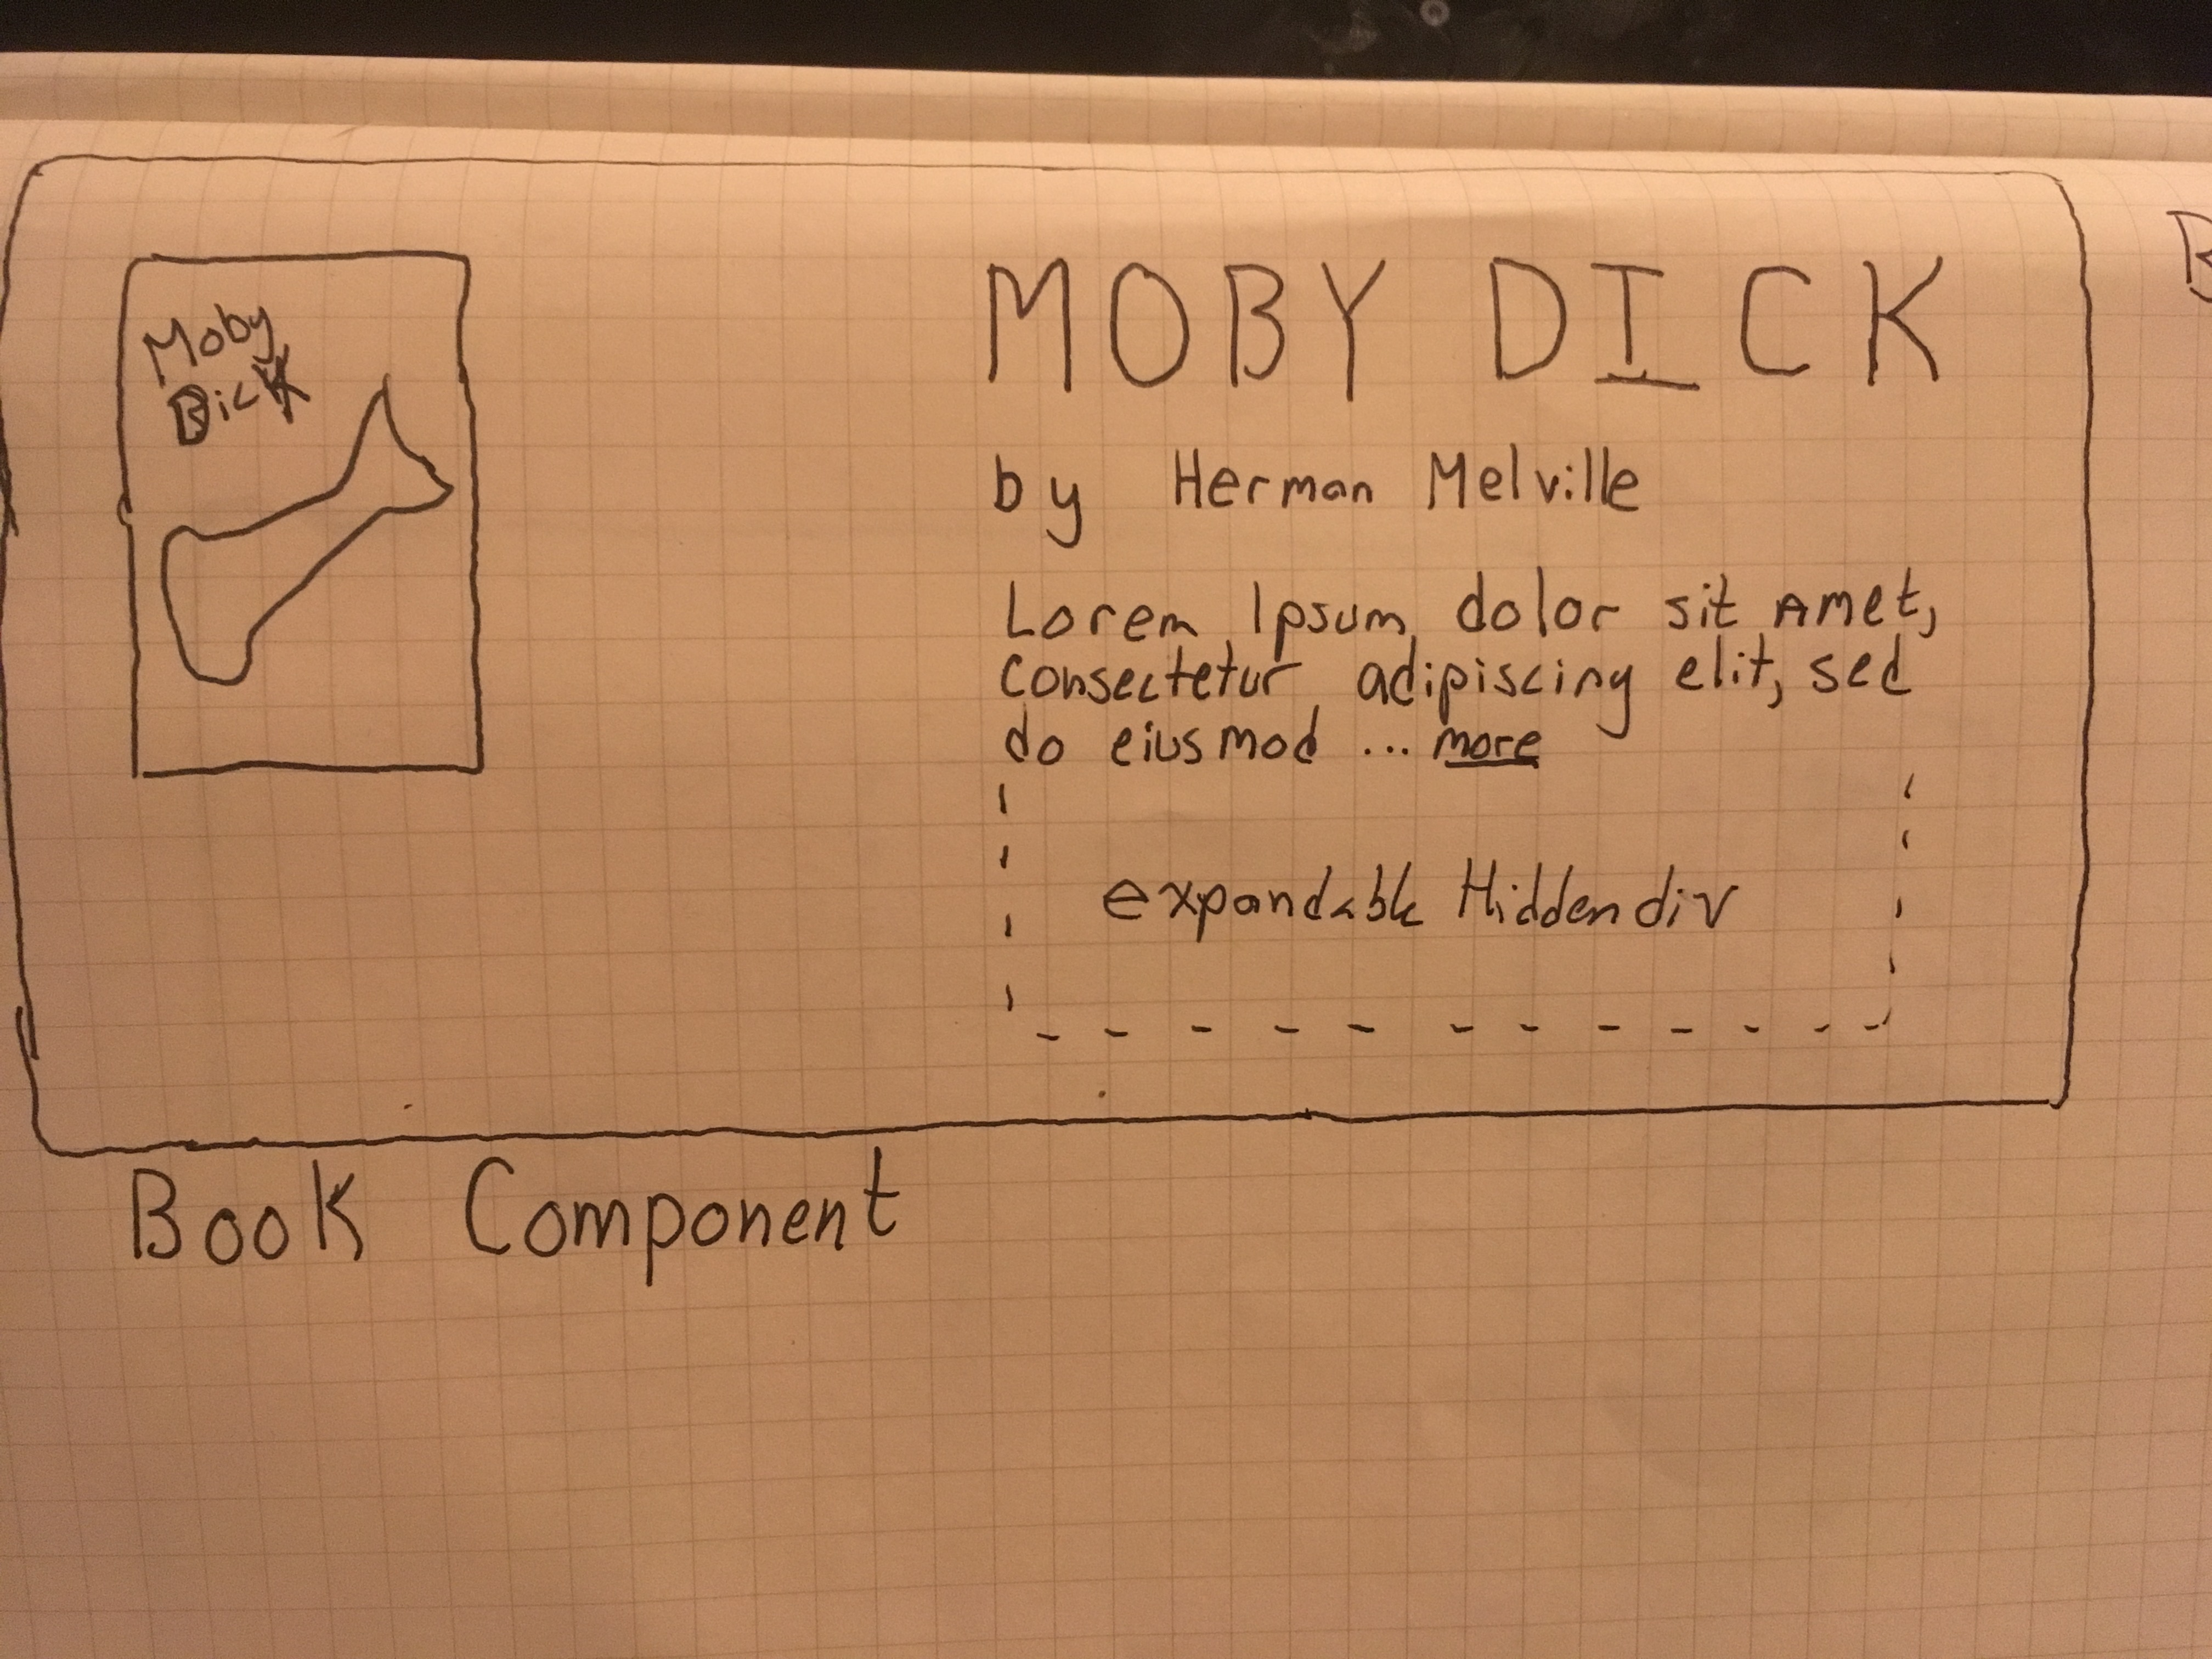 Moby
Dick
MOBY DICK
by Herman Melville
Lorem Ipsum dolor sit Amet,
consectetur adipiscing elit, sed
do eiusmod ... more
expandable Hidden div
Book Component